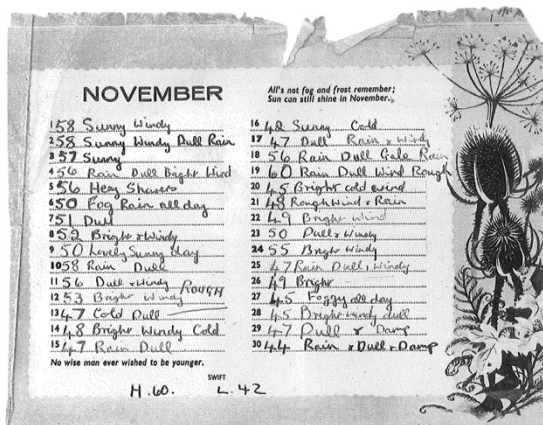 NOVEMBER
All's not fog and frost remember;
Sun can still shine in November.
1 58 Sunny Windy
2 58 Sunny Windy Dull Rain
3 57 Sunny
4 56 Rain Dull Bright Wind
5 56 Heavy Showers
6 50 Fog Rain all day
7 51 Dull
8 52 Bright & Windy
9 50 Lovely Sunny day
10 58 Rain Dull
11 56 Dull & Windy ROUGH
12 53 Bright Windy
13 47 Cold Dull
14 48 Bright Windy Cold
15 47 Rain Dull
No wise man ever wished to be younger.
SWIFT
16 48 Sunny Cold
17 47 Dull Rain & Windy
18 56 Rain Dull Gale Rain
19 60 Rain Dull Wind Rough
20 45 Bright cold wind
21 48 Rough Wind & Rain
22 49 Bright Wind
23 50 Dull & Windy
24 55 Bright Windy
25 47 Rain Dull, Windy
26 49 Bright
27 45 Foggy all day
28 45 Bright windy dull
29 47 Dull & Damp
30 44 Rain & Dull & Damp
H. 60. L. 42